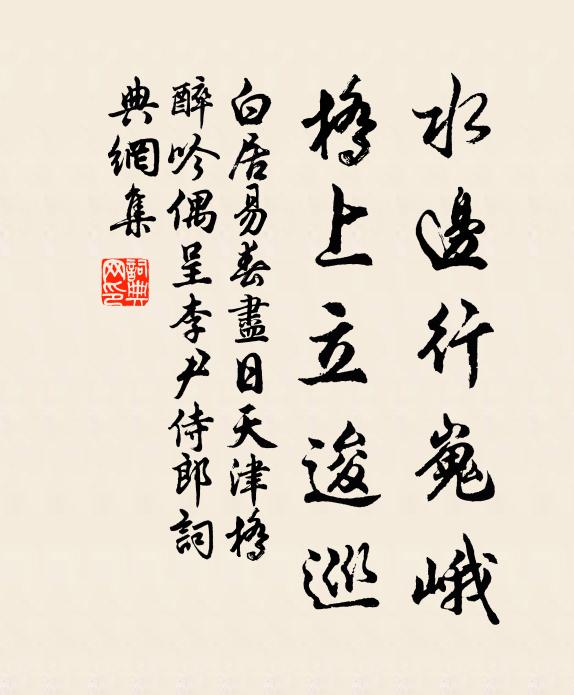 水邊行嵬峨
橋上立逡巡
白居易春盡日天津橋
醉吟偶呈李尹侍郎詞
典網集
詞典網印